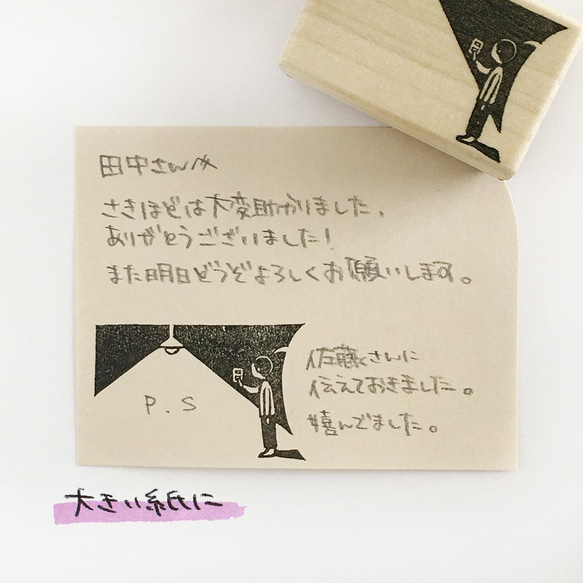 田中さんへ
さきほどは大変助かりました、
ありがとうございました!
また明日どうぞよろしくお願いします。
P.S
佐藤くさんに
伝えておきました。
嬉んでました。
大きい紙に